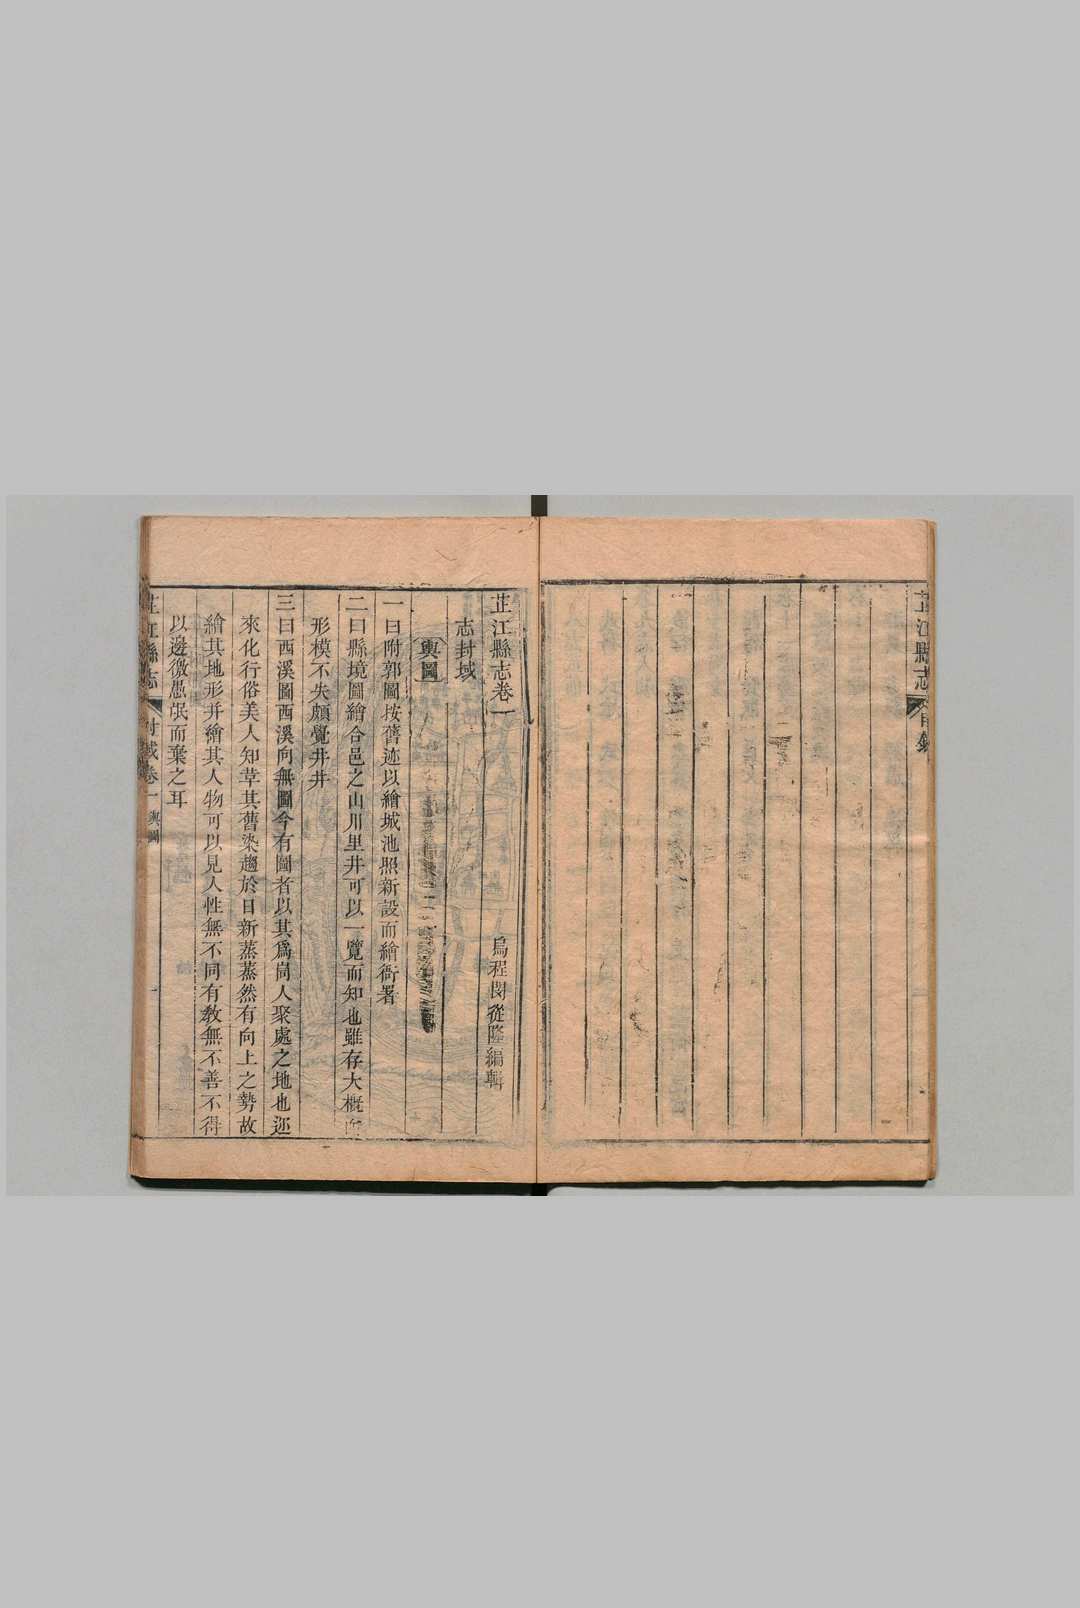 芷江縣志
目錄
芷江縣志卷一
烏程閔從隆編輯
志封域
輿圖
一曰附郭圖按舊迹以繪城池照新設而繪衙署
二曰縣境圖繪合邑之山川里井可以一覽而知也雖存大概
形模不失頗覺井井
三曰西溪圖西溪向無圖今有圖者以其爲峝人聚處之地也迩
來化行俗美人知革其舊染趨於日新蒸蒸然有向上之勢故
繪其地形并繪其人物可以見人性無不同有教無不善不得
以邊徼愚氓而棄之耳
芷江縣志
封域卷一
輿圖
一